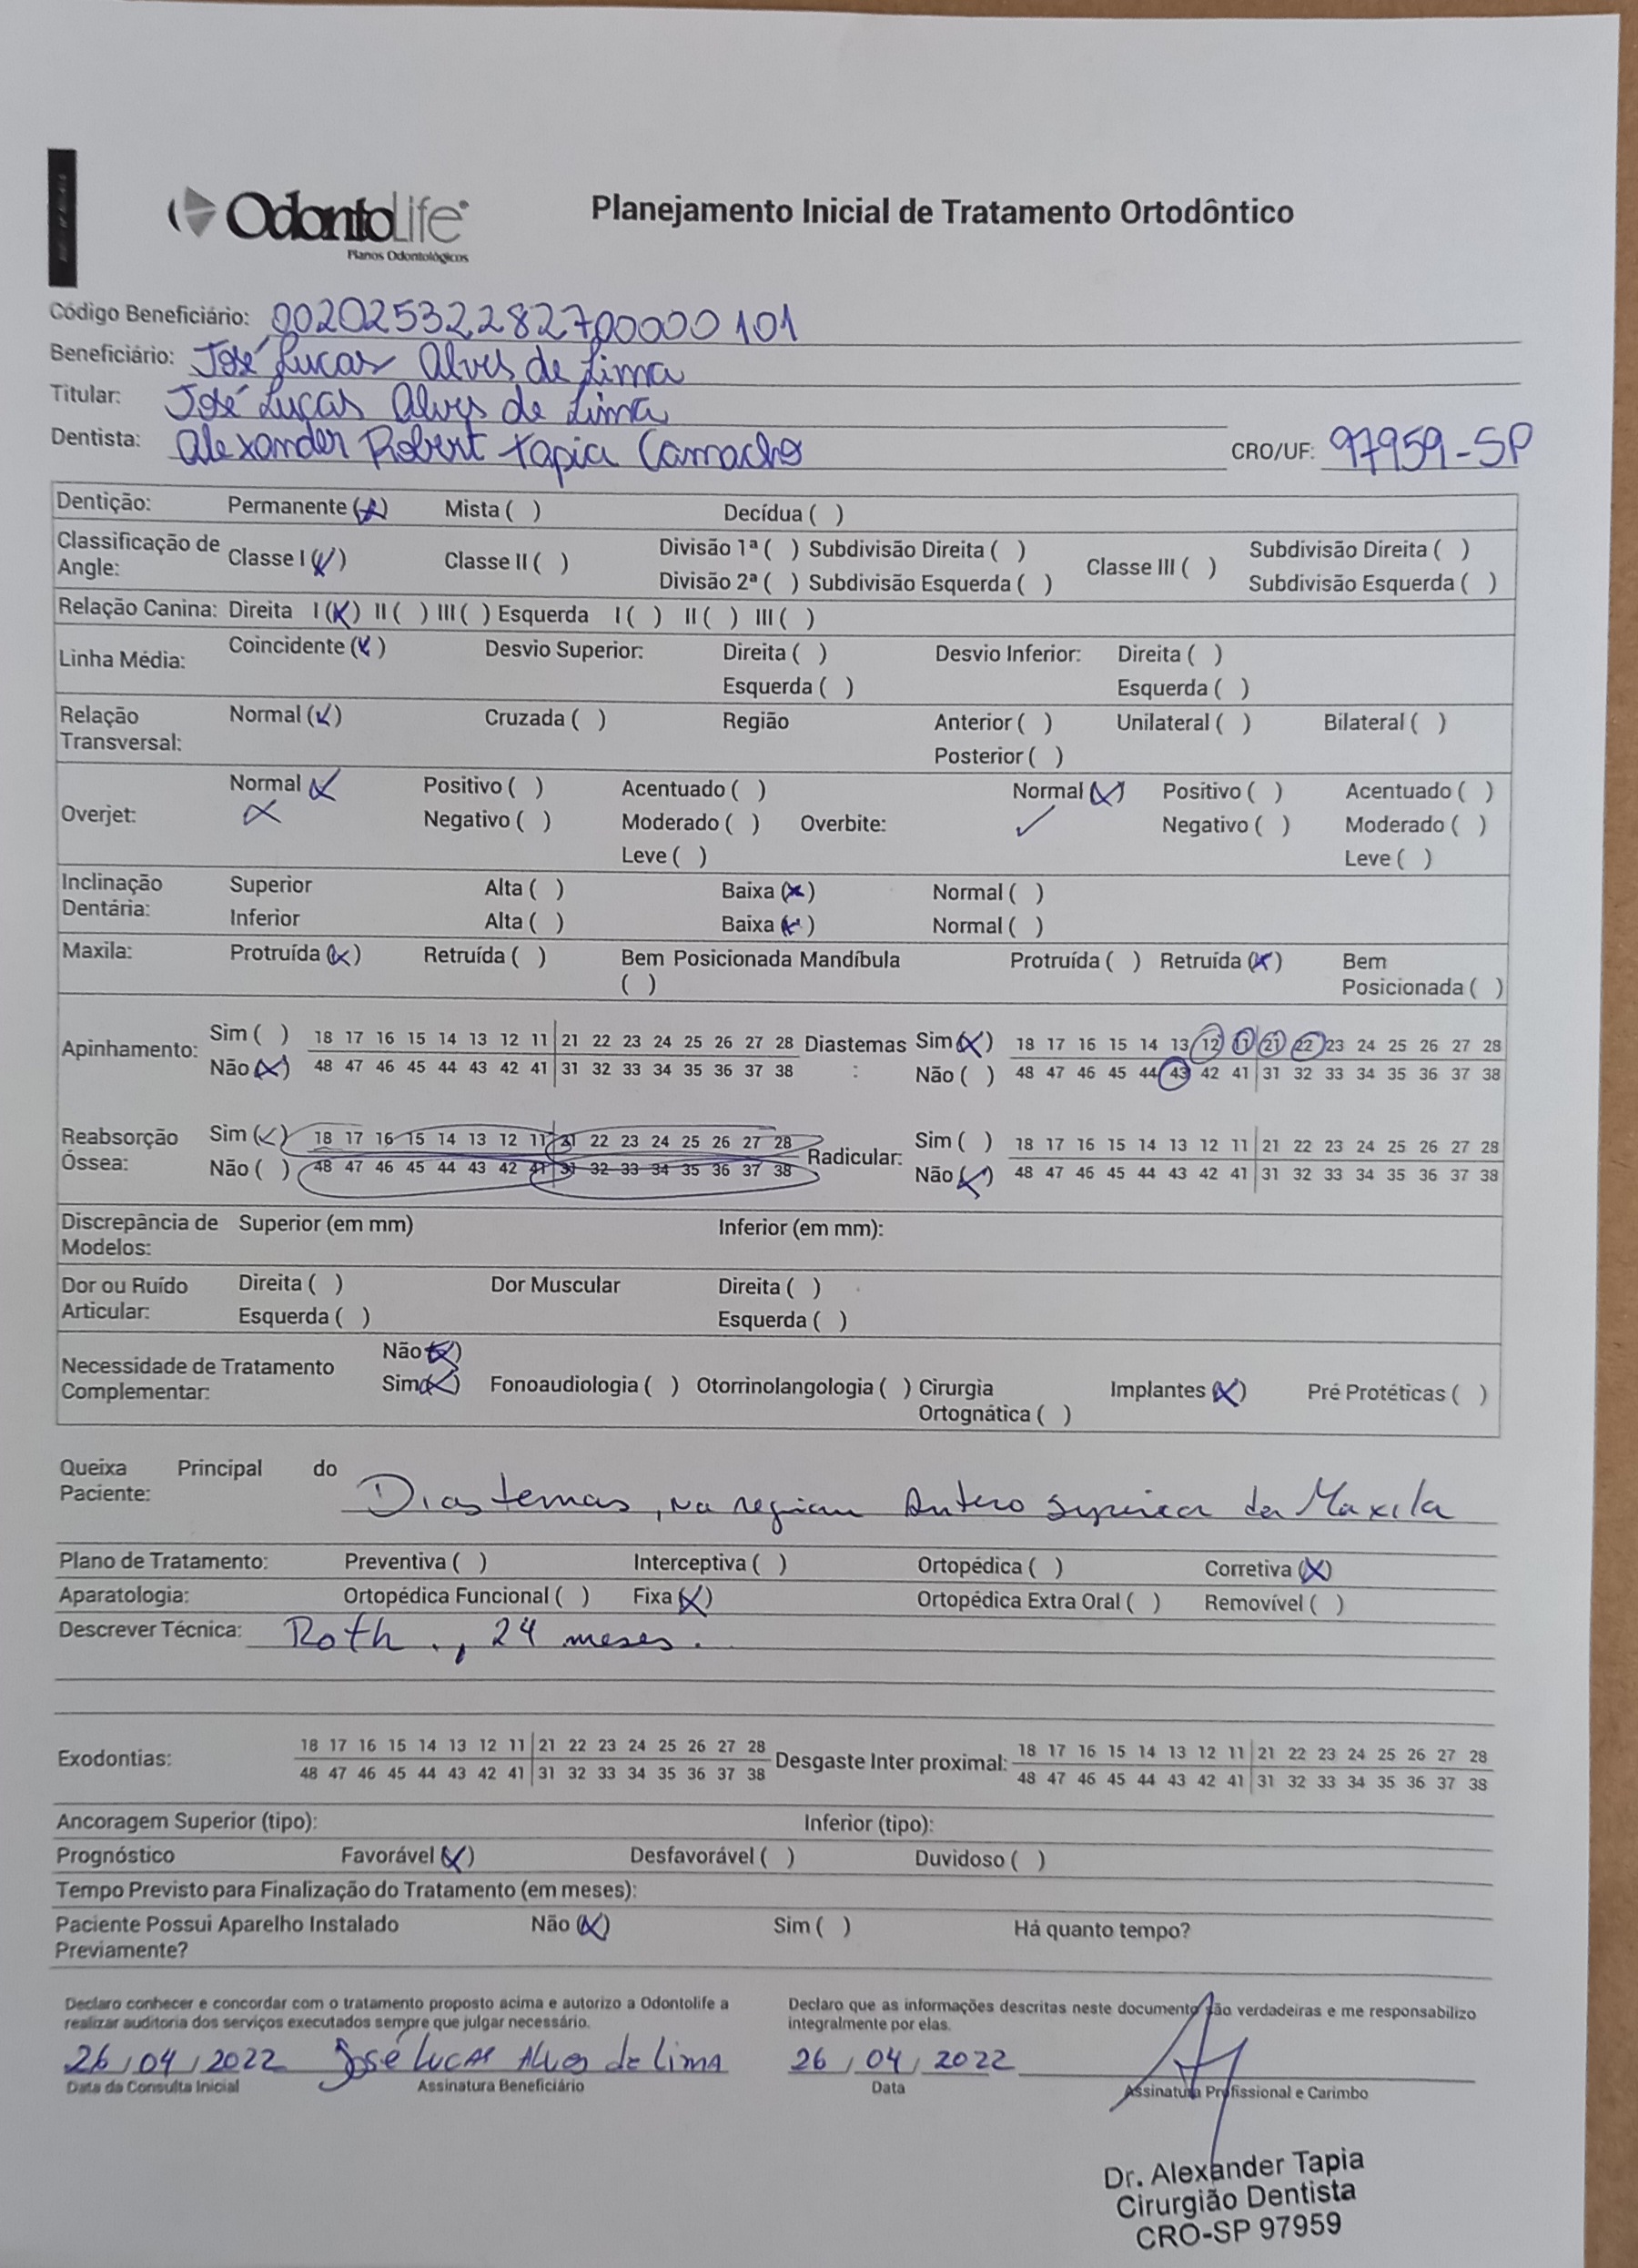 OdontoLife
Planos Odontológicos
Planejamento Inicial de Tratamento Ortodôntico
Código Beneficiário: 00202532282700000101
Beneficiário: José Lucas Alves de Lima
Titular: José Lucas Alves de Lima
Dentista: Alexander Robert Tapia Camacho CRO/UF: 97959-SP
Dentição: Permanente (X) Mista ( ) Decídua ( )
Classificação de Angle: Classe I (X) Classe II ( ) Divisão 1ª ( ) Subdivisão Direita ( ) Classe III ( ) Subdivisão Direita ( )
Divisão 2ª ( ) Subdivisão Esquerda ( ) Subdivisão Esquerda ( )
Relação Canina: Direita I (X) II ( ) III ( ) Esquerda I ( ) II ( ) III ( )
Linha Média: Coincidente (X) Desvio Superior: Direita ( ) Desvio Inferior: Direita ( )
Esquerda ( ) Esquerda ( )
Relação Transversal: Normal (X) Cruzada ( ) Região Anterior ( ) Unilateral ( ) Bilateral ( )
Posterior ( )
Overjet: Normal (X) Positivo ( ) Acentuado ( ) Normal (X) Positivo ( ) Acentuado ( )
Negativo ( ) Moderado ( ) Overbite: Negativo ( ) Moderado ( )
Leve ( ) Leve ( )
Inclinação Dentária: Superior Alta ( ) Baixa (X) Normal ( )
Inferior Alta ( ) Baixa (X) Normal ( )
Maxila: Protruída (X) Retruída ( ) Bem Posicionada ( ) Mandíbula Protruída ( ) Retruída (X) Bem Posicionada ( )
Apinhamento: Sim ( ) 18 17 16 15 14 13 12 11 21 22 23 24 25 26 27 28 Diastemas: Sim (X) 18 17 16 15 14 13 12 11 21 22 23 24 25 26 27 28
Não (X) 48 47 46 45 44 43 42 41 31 32 33 34 35 36 37 38 Não ( ) 48 47 46 45 44 43 42 41 31 32 33 34 35 36 37 38
Reabsorção Óssea: Sim (X) 18 17 16 15 14 13 12 11 21 22 23 24 25 26 27 28 Radicular: Sim ( ) 18 17 16 15 14 13 12 11 21 22 23 24 25 26 27 28
Não ( ) 48 47 46 45 44 43 42 41 31 32 33 34 35 36 37 38 Não (X) 48 47 46 45 44 43 42 41 31 32 33 34 35 36 37 38
Discrepância de Modelos: Superior (em mm) Inferior (em mm):
Dor ou Ruído Articular: Direita ( ) Dor Muscular Direita ( )
Esquerda ( ) Esquerda ( )
Necessidade de Tratamento Complementar: Não (X)
Sim (X) Fonoaudiologia ( ) Otorrinolangologia ( ) Cirurgia Ortognática ( ) Implantes (X) Pré Protéticas ( )
Queixa Principal do Paciente: Diastemas, na regiam Antero superior da Maxila
Plano de Tratamento: Preventiva ( ) Interceptiva ( ) Ortopédica ( ) Corretiva (X)
Aparatologia: Ortopédica Funcional ( ) Fixa (X) Ortopédica Extra Oral ( ) Removível ( )
Descrever Técnica: Roth., 24 meses.
Exodontias: 18 17 16 15 14 13 12 11 21 22 23 24 25 26 27 28 Desgaste Inter proximal: 18 17 16 15 14 13 12 11 21 22 23 24 25 26 27 28
48 47 46 45 44 43 42 41 31 32 33 34 35 36 37 38 48 47 46 45 44 43 42 41 31 32 33 34 35 36 37 38
Ancoragem Superior (tipo): Inferior (tipo):
Prognóstico Favorável (X) Desfavorável ( ) Duvidoso ( )
Tempo Previsto para Finalização do Tratamento (em meses):
Paciente Possui Aparelho Instalado Previamente? Não (X) Sim ( ) Há quanto tempo?
Declaro conhecer e concordar com o tratamento proposto acima e autorizo a Odontolife a
realizar auditoria dos serviços executados sempre que julgar necessário.
Declaro que as informações descritas neste documento são verdadeiras e me responsabilizo
integralmente por elas.
26/04/2022 José Lucas Alves de Lima 26/04/2022
Data da Consulta Inicial Assinatura Beneficiário Data Assinatura Profissional e Carimbo
Dr. Alexander Tapia
Cirurgião Dentista
CRO-SP 97959